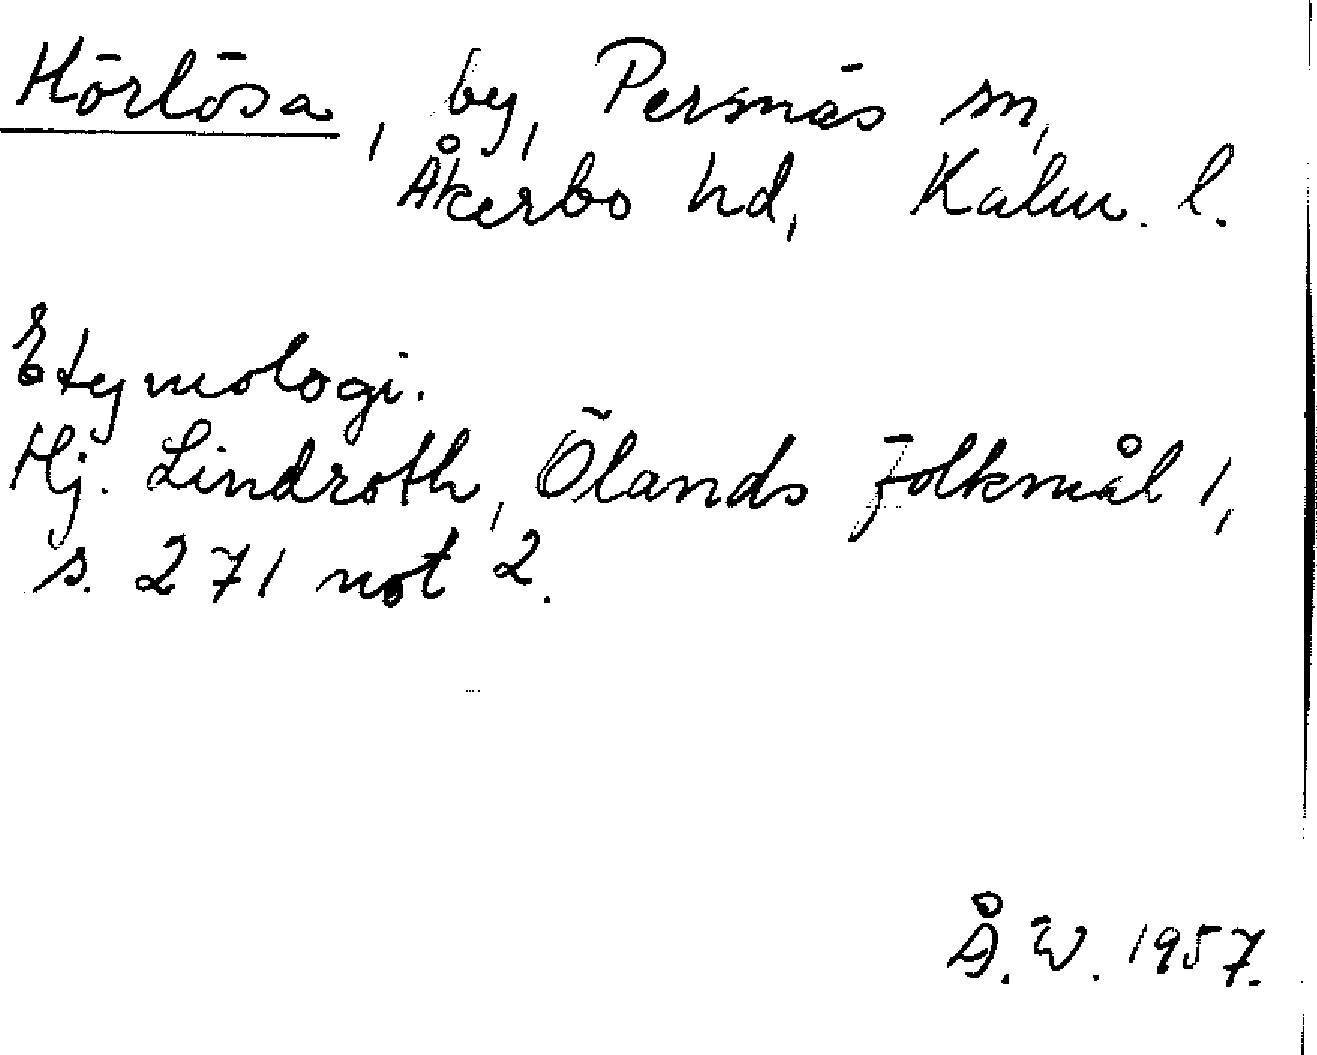 Hörlösa, by, Persnäs sn,
Åkerbo hd, Kalm. l.
Etymologi.
Hj. Lindroth, Ölands folkmål 1,
s. 271 not 2.
Å. W. 1957.